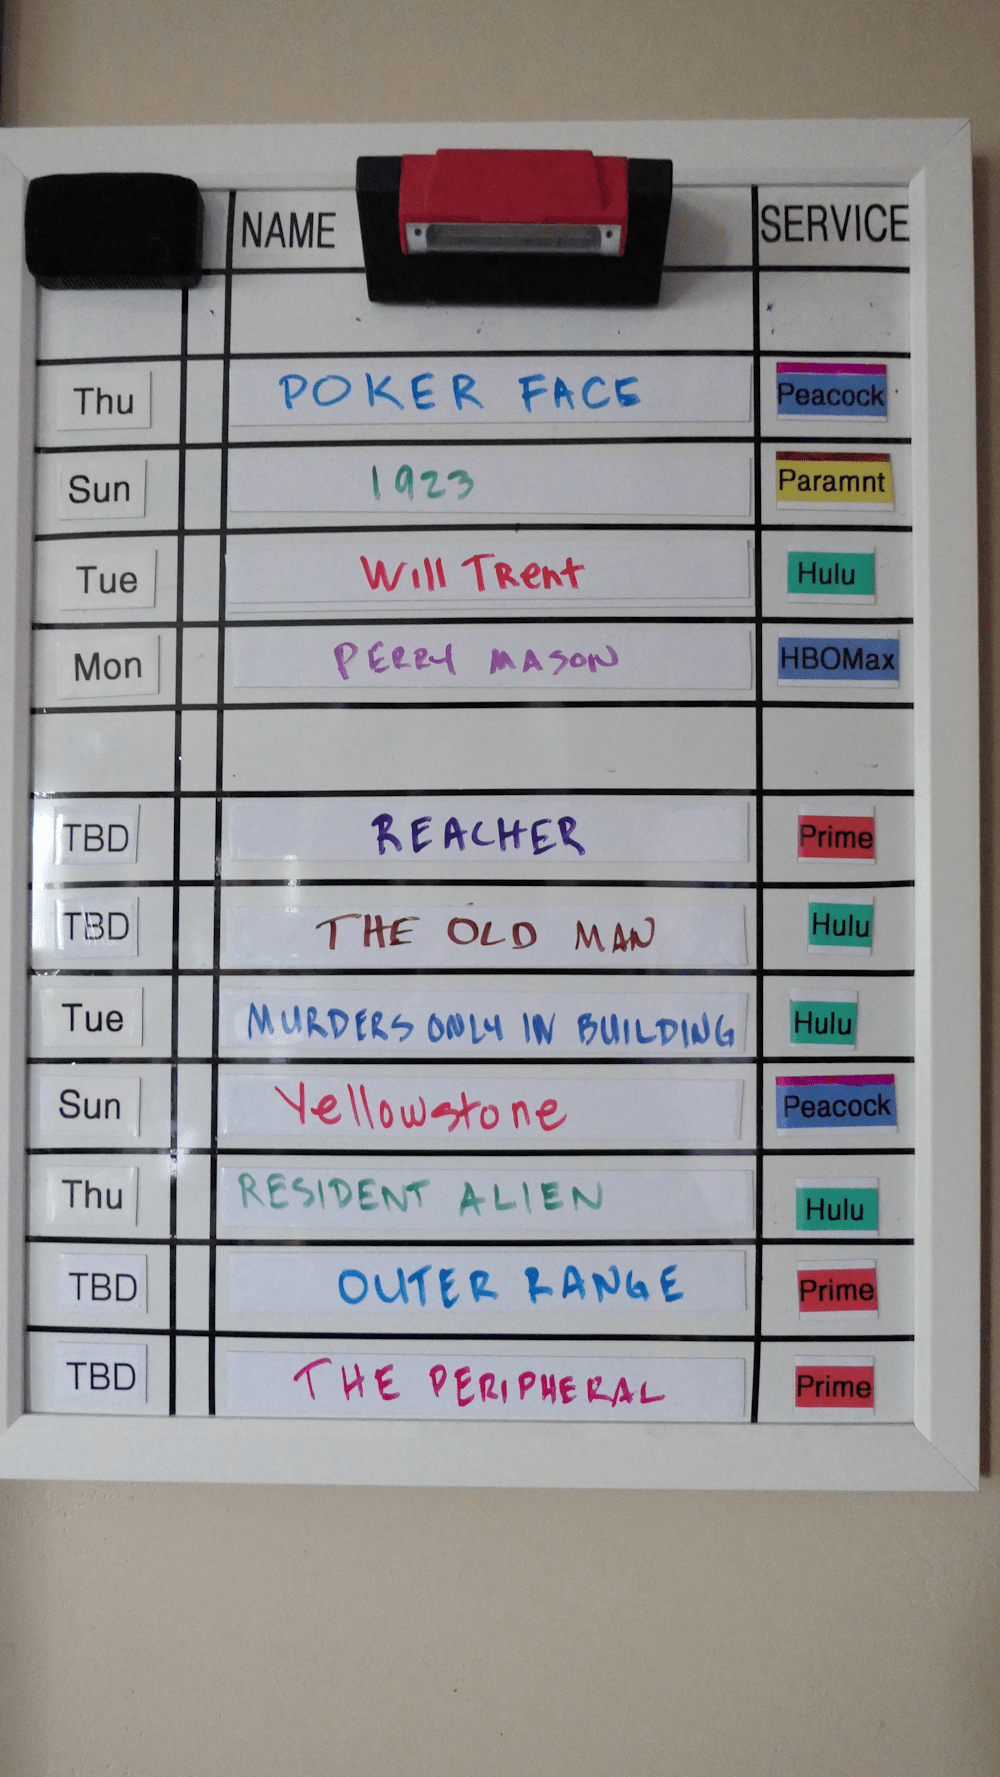 NAME SERVICE
Thu POKER FACE Peacock
Sun 1923 Paramnt
Tue Will Trent Hulu
Mon PERRY MASON HBOMax
TBD REACHER Prime
TBD THE OLD MAN Hulu
Tue MURDERS ONLY IN BUILDING Hulu
Sun Yellowstone Peacock
Thu RESIDENT ALIEN Hulu
TBD OUTER RANGE Prime
TBD THE PERIPHERAL Prime